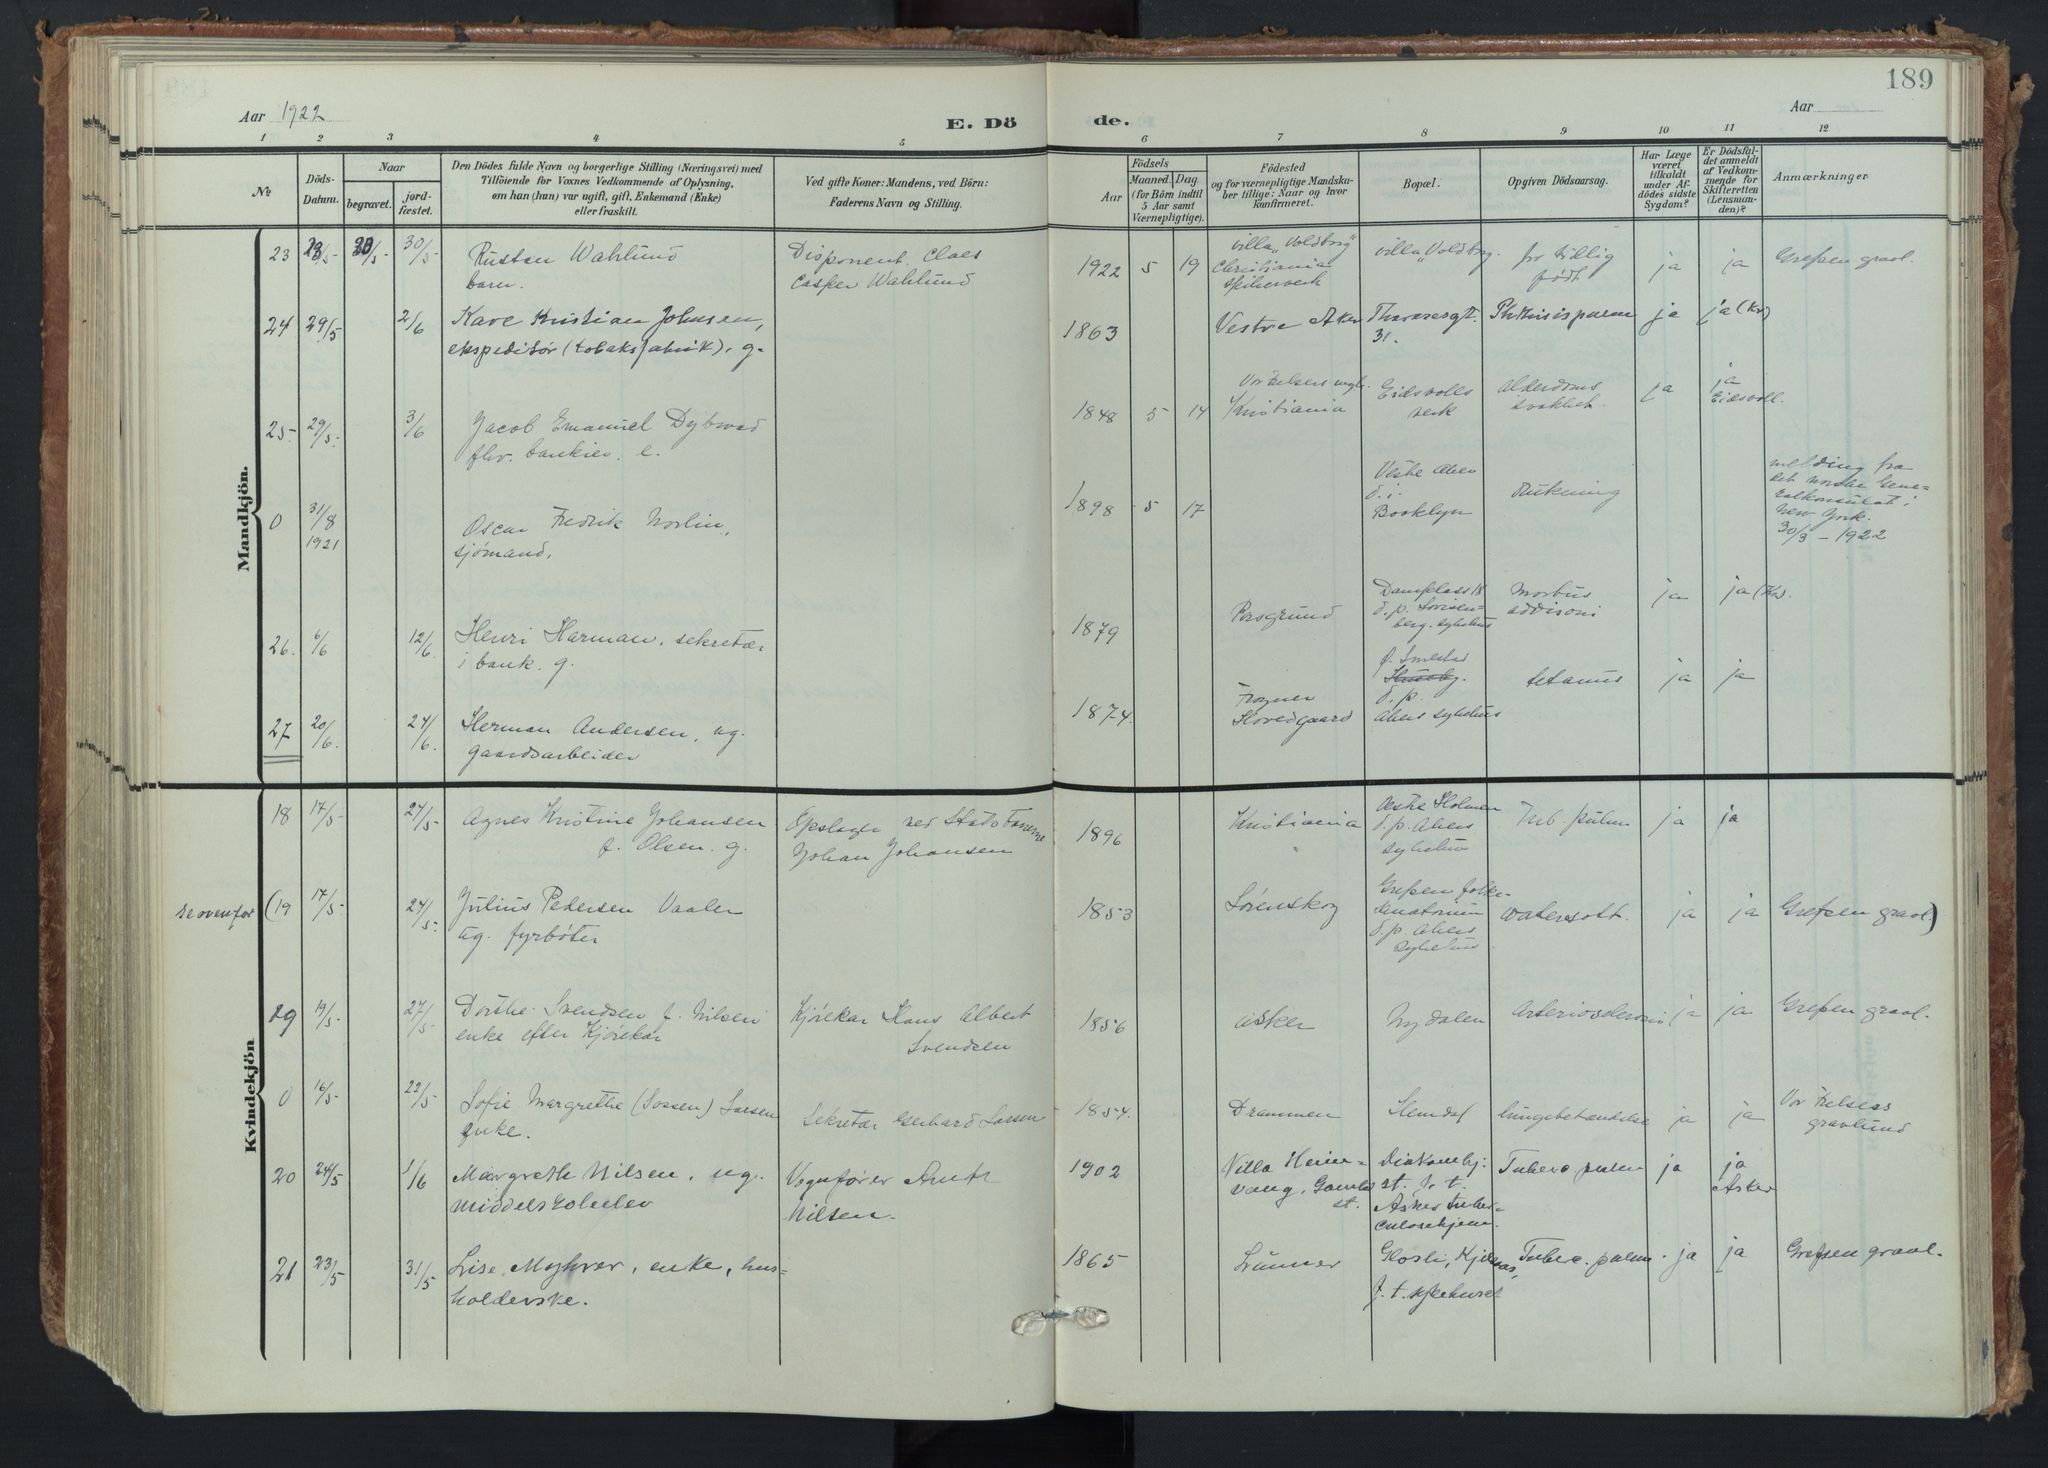 189
Aar 1922
E. Dö
de.
Aar
1 2 3 4 5 6 7 8 9 10 11 12
No
Döds-
Datum.
Naar
begravet.
jord-
fæstet.
Den Dödes fulde Navn og borgerlige Stilling (Næringsvei) med
Tilföiende for Voxnes Vedkommende af Oplysning,
om han (hun) var ugift, gift, Enkemand (Enke)
eller fraskilt.
Ved gifte Koner: Mandens, ved Börn:
Faderens Navn og Stilling.
Födsels
Aar
Maaned.
Dag
(for Börn indtil
5 Aar samt
Værnepligtige).
Födested
og for værnepligtige Mandska-
ber tillige: Naar og hvor
konfirmeret.
Bopæl.
Opgiven Dödsaarsag.
Har Læge
været
tilkaldt
under Af-
dödes sidste
Sygdom?
Er Dödsfal-
det anmeldt
af Vedkom-
mende for
Skifteretten
(Lensman-
den)?
Anmærkninger
Mandkjön.
23 30/5
Rustan Wahlund
barn.
Disponent Claes
Casper Wahlund
1922 5 19
villa "Voldborg"
Christiania
spikerverk
villa "Voldborg.
for tidlig
født
ja ja
Grefsen gravl.
24 29/5 2/6
Kare Kristian Johnsen,
ekspeditør (tobaksfabrik), g.
1863
Vestre Aker
Theresesgt.
31.
Phthisis pulm
ja ja (Kr)
25. 29/5. 3/6
Jacob Emanuel Dybwad
fhv. bankier. e.
1848 5 14
Vor Frelsers mgh.
Kristiania
Eidsvolls
verk
alderdoms
svakhet.
ja ja
Eidsvoll.
0 31/8
1921
Oscar Fredrik Norlin,
sjømand.
1898 5 17
Vestre Aker
d. i.
Booklyn
drukning
melding fra
det norske Gene-
ralkonsulat i
New York.
30/3 - 1922
26. 6/6 12/6
Henri Harman, sekretær
i bank. g.
1879
Porsgrund
Damplass 18
d. p. Lovisen-
berg. sykehus
Morbus
addisoni
ja ja (Kr).
27 20/6. 24/6.
Herman Andersen, ug.
gaardsarbeider
1874.
Frogner
Hovedgaard
ø. Smestad
Huseby.
d. p.
Akers sykehus
tetanus
ja ja
Kvindekjön
18 17/5 24/5
Agnes Kristine Johansen
f. Olsen. g.
Opslager ved Stats banerne
Johan Johansen
1896
Kristiania
"
Vestre Holmen
d. p. Akers
sykehus
Tub. pulm
ja ja
se ovenfor (19 17/5. 24/5.
Julius Pedersen Vaaler
ug. fyrbøter
1853
Lørenskog
Grefsen folke-
sanatorium
d. p. Akers
sykehus
watersott.
ja ja
Grefsen gravl.)
29 19/5. 27/5.
Dorthe Svendsen f. Nilsen
enke efter Kjørekar
Kjørekar Hans Albert
Svendsen
1856
Asker
Nydalen
Arteriosclerosis
ja ja
Grefsen gravl.
0 16/5. 22/5
Sofie Margrethe (Sossen) Larsen
enke.
Sekretær Gerhard Larsen
1854.
Drammen
Slemdal
lungebetændelse
ja ja
Vor Frelsers
gravlund
20 24/5 1/6
Margreth Nilsen, ug.
middelskoleelev
Vognfører Anth
Nilsen.
1902
Villa Heim-
vang, Gaustad
st.
Diakonhj:
st. f. t.
Askers tuber-
culosehjem.
Tuberc. pulm
ja ja
Asker
21 23/5 31/5
Lise Myhrer, enke, hus-
holderske.
1865
Lunner
Glosli, Kjelsaas,
f. t. sykehuset
Tuberc. pulm.
ja ja
Grefsen gravl.